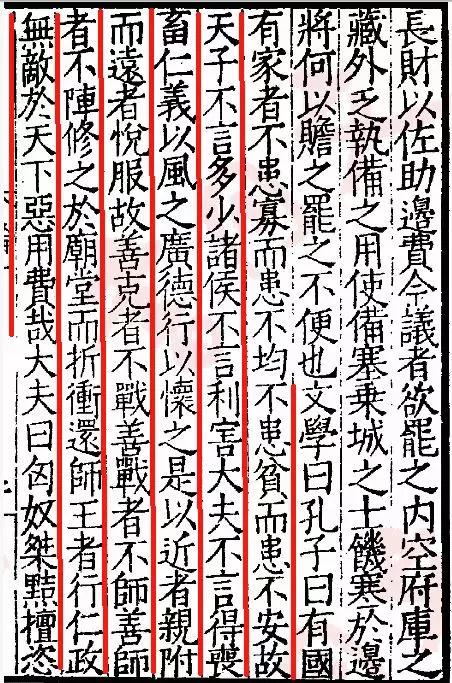 長財以佐助邊費今議者欲罷之内空府庫之
藏外乏執備之用使備塞乗城之士饑寒於邊
將何以贍之罷之不便也文學曰孔子曰有國
有家者不患寡而患不均不患貧而患不安故
天子不言多少諸侯不言利害大夫不言得喪
畜仁義以風之廣德行以懷之是以近者親附
而遠者悅服故善克者不戰善戰者不師善師
者不陣修之於廟堂而折衝還師王者行仁政
無敵於天下惡用費哉大夫曰匈奴桀黠擅恣